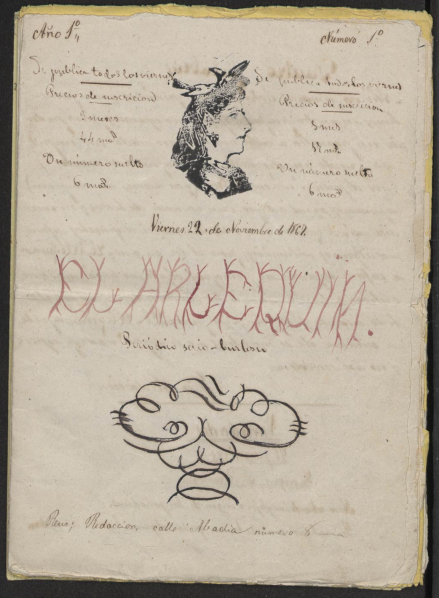 Año 1º
Número 1º
Se publica todos los viernes
Precios de suscricion
3 meses
44 mrs
Un número suelto
6 mrs
Se publica todos los viernes
Precios de suscricion
1 mes
17 mrs
Un número suelto
6 mrs
Viernes 22 de Noviembre de
EL ARLEQUIN.
Periódico serio-burlesco
Reus; Redaccion, calle Abadia número